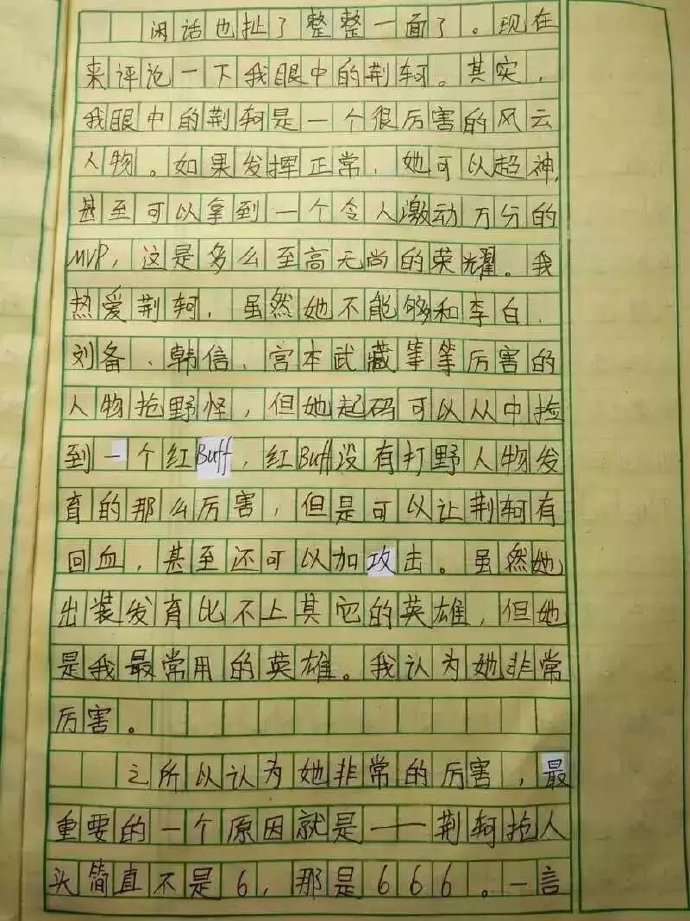 闲话也扯了整整一面了。现在
来评论一下我眼中的荆轲。其实，
我眼中的荆轲是一个很厉害的风云
人物。如果发挥正常，她可以超神，
甚至可以拿到一个令人激动万分的
MVP，这是多么至高无尚的荣耀。我
热爱荆轲，虽然她不能够和李白、
刘备、韩信、宫本武藏等等厉害的
人物抢野怪，但她起码可以从中捡
到一个红Buff，红Buff没有打野人物发
育的那么厉害，但是可以让荆轲有
回血，甚至还可以加攻击。虽然她
出装发育比不上其它的英雄，但她
是我最常用的英雄。我认为她非常
厉害。
之所以认为她非常的厉害，最
重要的一个原因就是——荆轲抢人
头简直不是6，那是666。一言